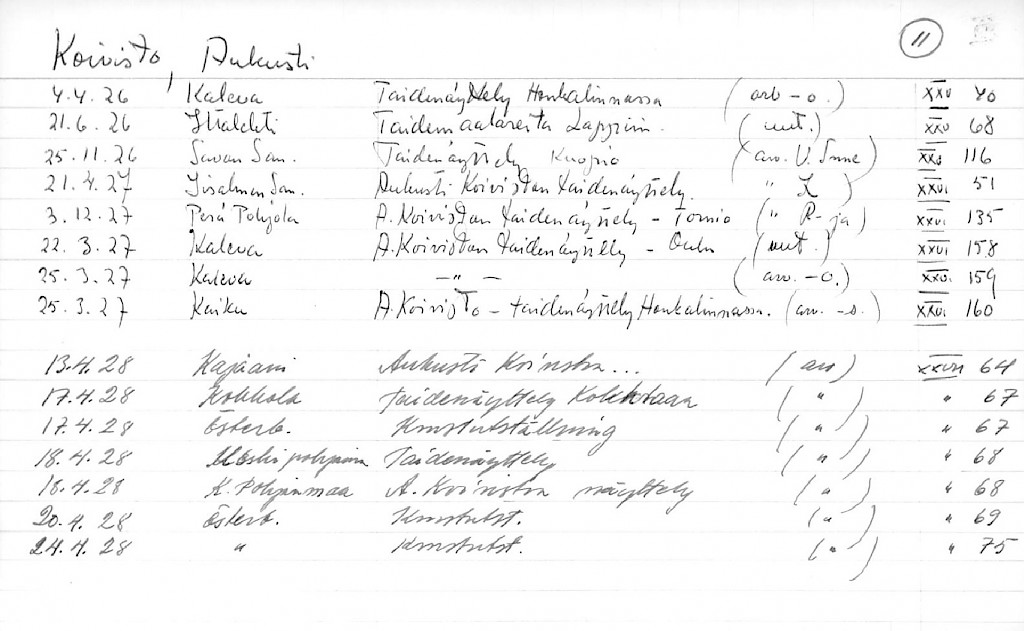 11
Koivisto, Aukusti
4.4.26 Kaleva Taidenäyttely Honkalinnassa (arv -o.) XXV 40
21.6.26 Iltalehti Taidemaalareita Lappiin. (uut.) XXV 68
25.11.26 Savon San. Taidenäyttely Kuopio (arv. U. Snne) XXV 116
21.4.27 Iisalmen San. Aukusti Koiviston taidenäyttely. " L ) XXVI 51
3.12.27 Perä Pohjola A. Koiviston taidenäyttely - Tornio (" R-ja) XXVI 135
22.3.27 Kaleva A. Koiviston taidenäyttely - Oulu (uut.) XXVI 158
25.3.27 Kaleva -"- (arv. -o.) XXVI 159
25.3.27 Kaiku A. Koivisto - taidenäyttely Honkalinnassa. (arv. -o.) XXVI 160
13.4.28 Kajaani Aukusti Koivisto... (arv) XXVII 64
17.4.28 Kokkola Taidenäyttely Kokkolaan (") " 67
17.4.28 Österb. Konstutställning (") " 67
18.4.28 Keskipohjanm Taidenäyttely (") " 68
18.4.28 K. Pohjanmaa A. Koiviston näyttely (") " 68
20.4.28 Österb. Konstutst. (") " 69
24.4.28 " Konstutst. (") " 75